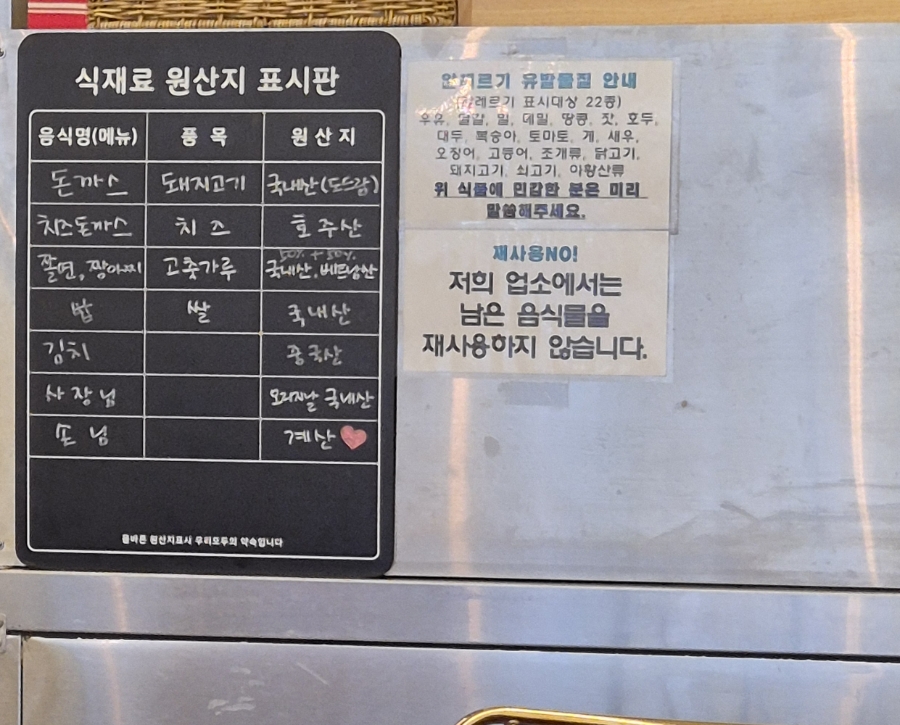 식재료 원산지 표시판
음식명(메뉴) 품 목 원 산 지
돈까스 돼지고기 국내산(도드람)
치즈돈까스 치 즈 호주산
50% + 50%
쫄면, 짱아찌 고춧가루 국내산, 베트남산
밥 쌀 국내산
김치 중국산
사장님 오리지날 국내산
손 님 계산
올바른 원산지표시 우리모두의 약속입니다
알레르기 유발물질 안내
(알레르기 표시대상 22종)
우유, 메밀, 땅콩, 잣, 호두,
대두, 복숭아, 토마토, 게, 새우,
오징어, 고등어, 조개류, 닭고기,
돼지고기, 쇠고기, 아황산류
위 식품에 민감한 분은 미리
말씀해주세요.
재사용NO!
저희 업소에서는
남은 음식물을
재사용하지 않습니다.